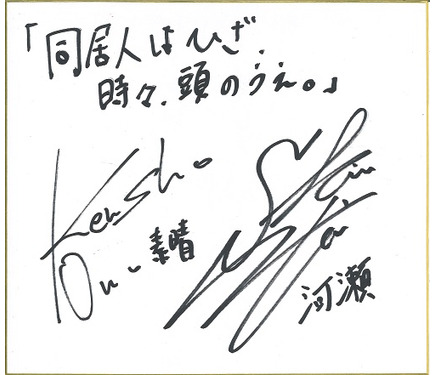 「同居人はひざ、
時々、頭のうえ。」
Kensho
Ono
素晴
河瀬